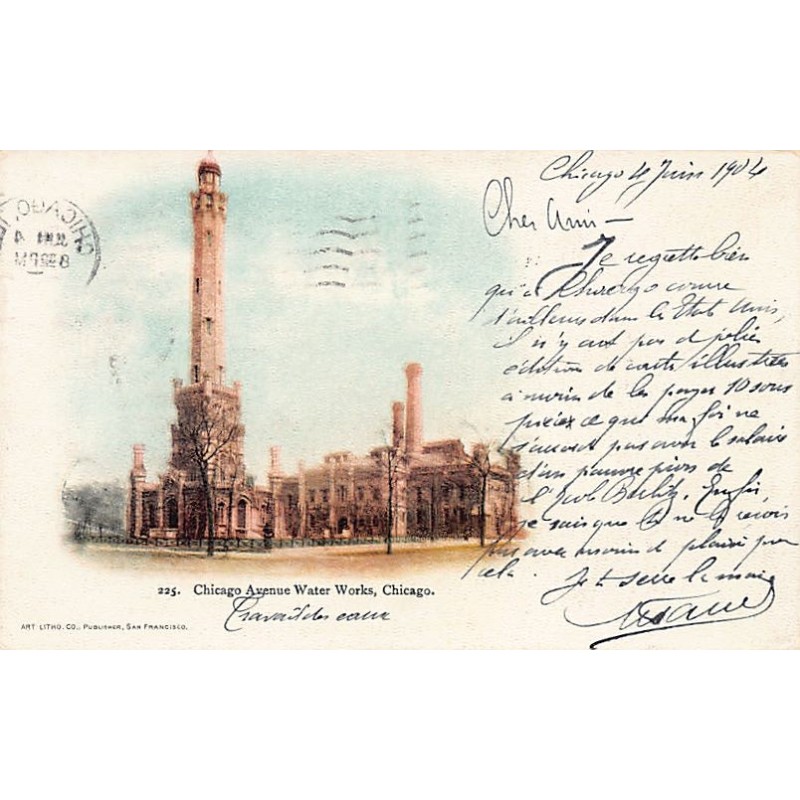 Chicago 4 Juin 1904
Cher Ami —
Je regrette bien
qu'à Chicago comme
d'ailleurs dans les Etats Unis,
il n'y ait pas de jolies
éditions de cartes illustrées
à moins de les payer 10 sous
pièce ce que ma foi ne
s'accorde pas avec le salaire
d'un pauvre de
l'Ecole Berlitz. Enfin,
je sais que tu ne les reçois
pas avec moins de plaisir pour
cela. Je te serre la main
CHICAGO
8 30 PM
225. Chicago Avenue Water Works, Chicago.
Travail des eaux
ART LITHO. CO., PUBLISHER, SAN FRANCISCO.